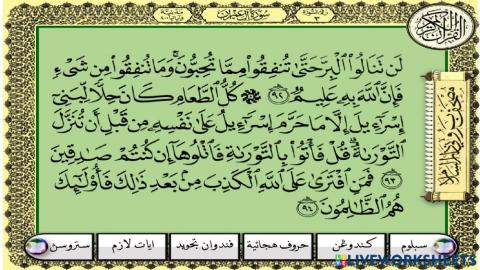 سورة آل عمران
٣
القرآن الكريم
لَن تَنَالُوا۟ ٱلْبِرَّ حَتَّىٰ تُنفِقُوا۟ مِمَّا تُحِبُّونَ ۚ وَمَا تُنفِقُوا۟ مِن شَىْءٍ
فَإِنَّ ٱللَّهَ بِهِۦ عَلِيمٌ ﴿٩٢﴾ ۞ كُلُّ ٱلطَّعَامِ كَانَ حِلًّا لِّبَنِىٓ
إِسْرَٰٓءِيلَ إِلَّا مَا حَرَّمَ إِسْرَٰٓءِيلُ عَلَىٰ نَفْسِهِۦ مِن قَبْلِ أَن تُنَزَّلَ
ٱلتَّوْرَىٰةُ ۗ قُلْ فَأْتُوا۟ بِٱلتَّوْرَىٰةِ فَٱتْلُوهَآ إِن كُنتُمْ صَٰدِقِينَ
﴿٩٣﴾ فَمَنِ ٱفْتَرَىٰ عَلَى ٱللَّهِ ٱلْكَذِبَ مِنۢ بَعْدِ ذَٰلِكَ فَأُو۟لَٰٓئِكَ
هُمُ ٱلظَّٰلِمُونَ ﴿٩٤﴾
سبلوم
كندوڠن
حروف هجائية
ڤندوان تجويد
ايات لازم
ستروسن
LIVEWORKSHEETS